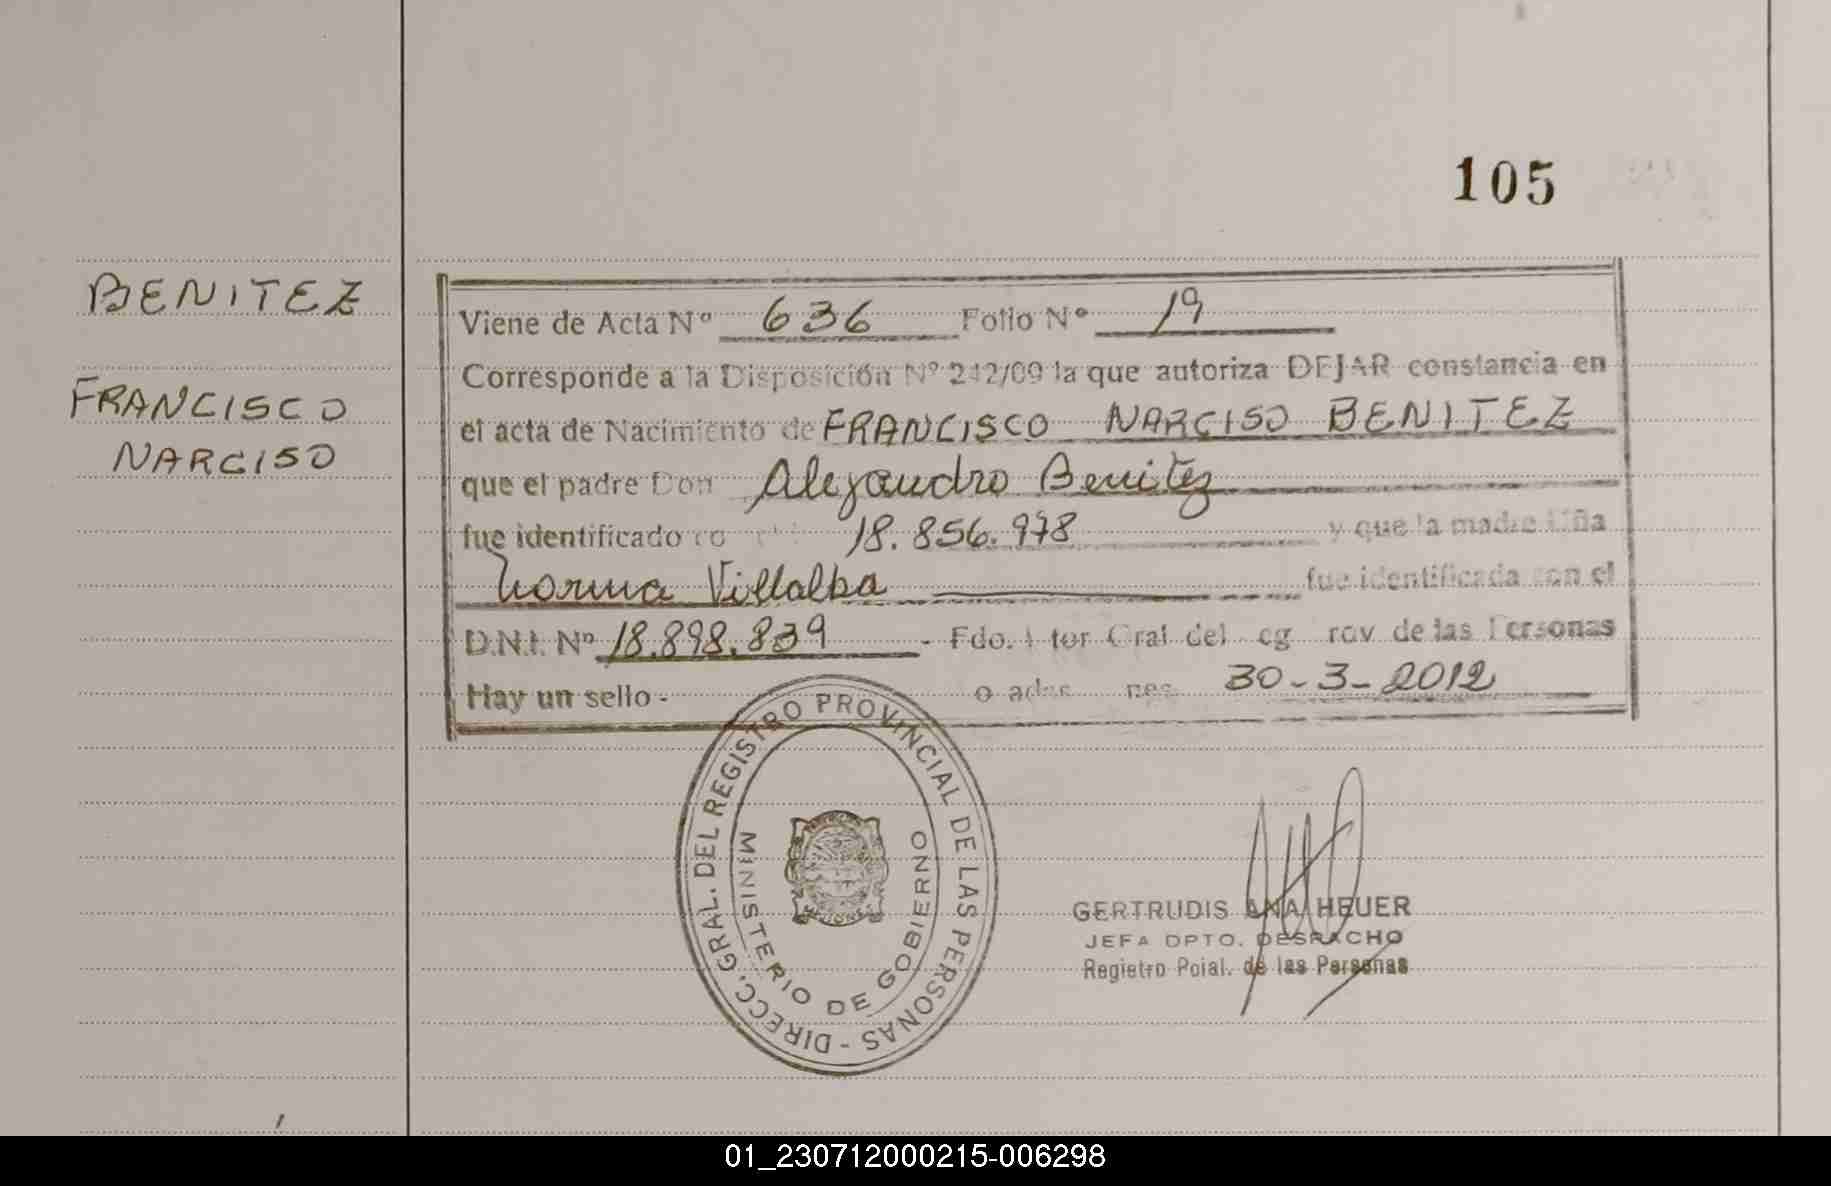 105
BENITEZ
FRANCISCO
NARCISO
Viene de Acta Nº 636 Folio Nº 19
Corresponde a la Disposición Nº 242/09 la que autoriza DEJAR constancia en
el acta de Nacimiento de FRANCISCO NARCISO BENITEZ
que el padre Don Alejandro Benitez
fue identificado 18.856.978 y que la madre Dña
Norma Villalba fue identificada con el
D.N.I. Nº 18.898.839 - Fdo. Gral del de las Personas
Hay un sello - 30-3-2012
DIRECC. GRAL. DEL REGISTRO PROVINCIAL DE LAS PERSONAS -
MINISTERIO DE GOBIERNO
MISIONES
GERTRUDIS ANA HEUER
JEFA DPTO. DESPACHO
Registro Pcial. de las Personas
01_230712000215-006298